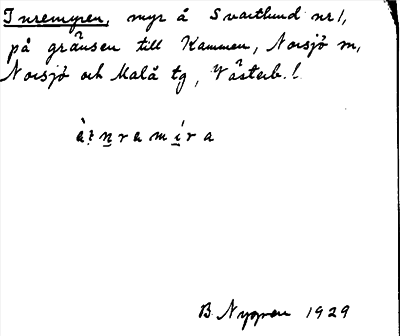 Inremyren, myr å Svartlund nr 1,
på gränsen till Kammen, Norsjö sn,
Norsjö och Malå tg, Västerb. l.
B. Nygren 1929